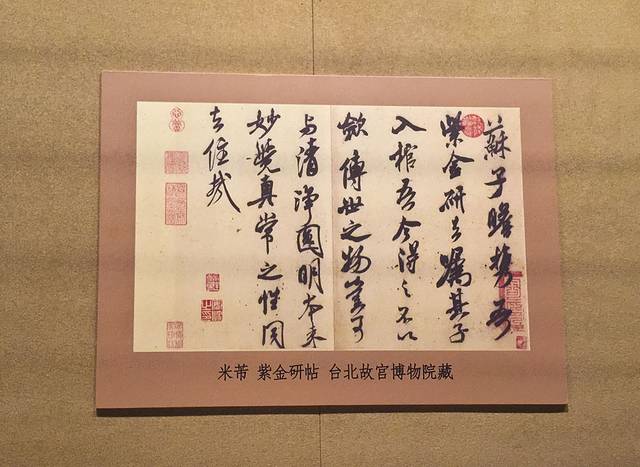 蘇子瞻携吾
紫金研去嘱其子
入棺吾今得之不以
歛傳世之物豈可
与清淨圓明本来
妙覺真常之性同
去住哉
米芾 紫金研帖 台北故宫博物院藏